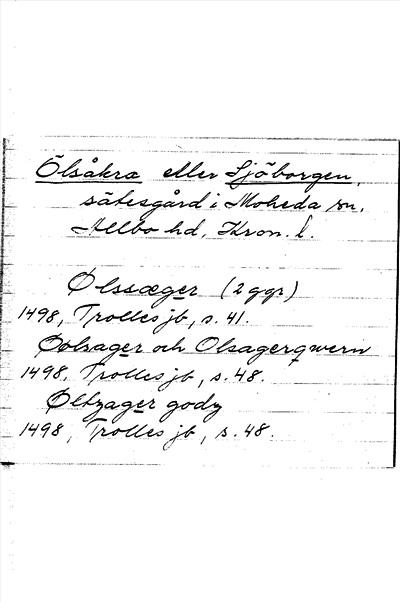 Ölsåkra eller Sjöborgen,
sätesgård i Moheda sn,
Allbo hd, Kron. l.
Ølssæger (2 ggr)
1498, Trolles jb, s. 41.
Øolsager och Olsagerqwern
1498, Trolles jb, s. 48.
Øltzager godz
1498, Trolles jb, s. 48.